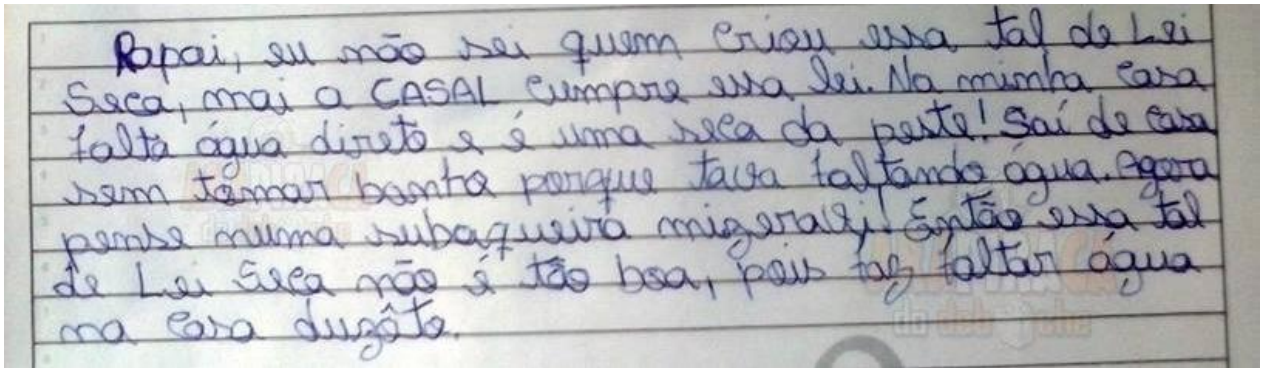 Papai, eu não sei quem criou essa tal de Lei
Seca, mai a CASAL cumpre essa lei. Na minha casa
falta água direto e é uma seca da peste! Saí de casa
sem tomar banho porque tava faltando água. Agora
pense numa subaqueira mizeravi! Então essa tal
de Lei Seca não é tão boa, pois faz faltar água
na casa duzôto.